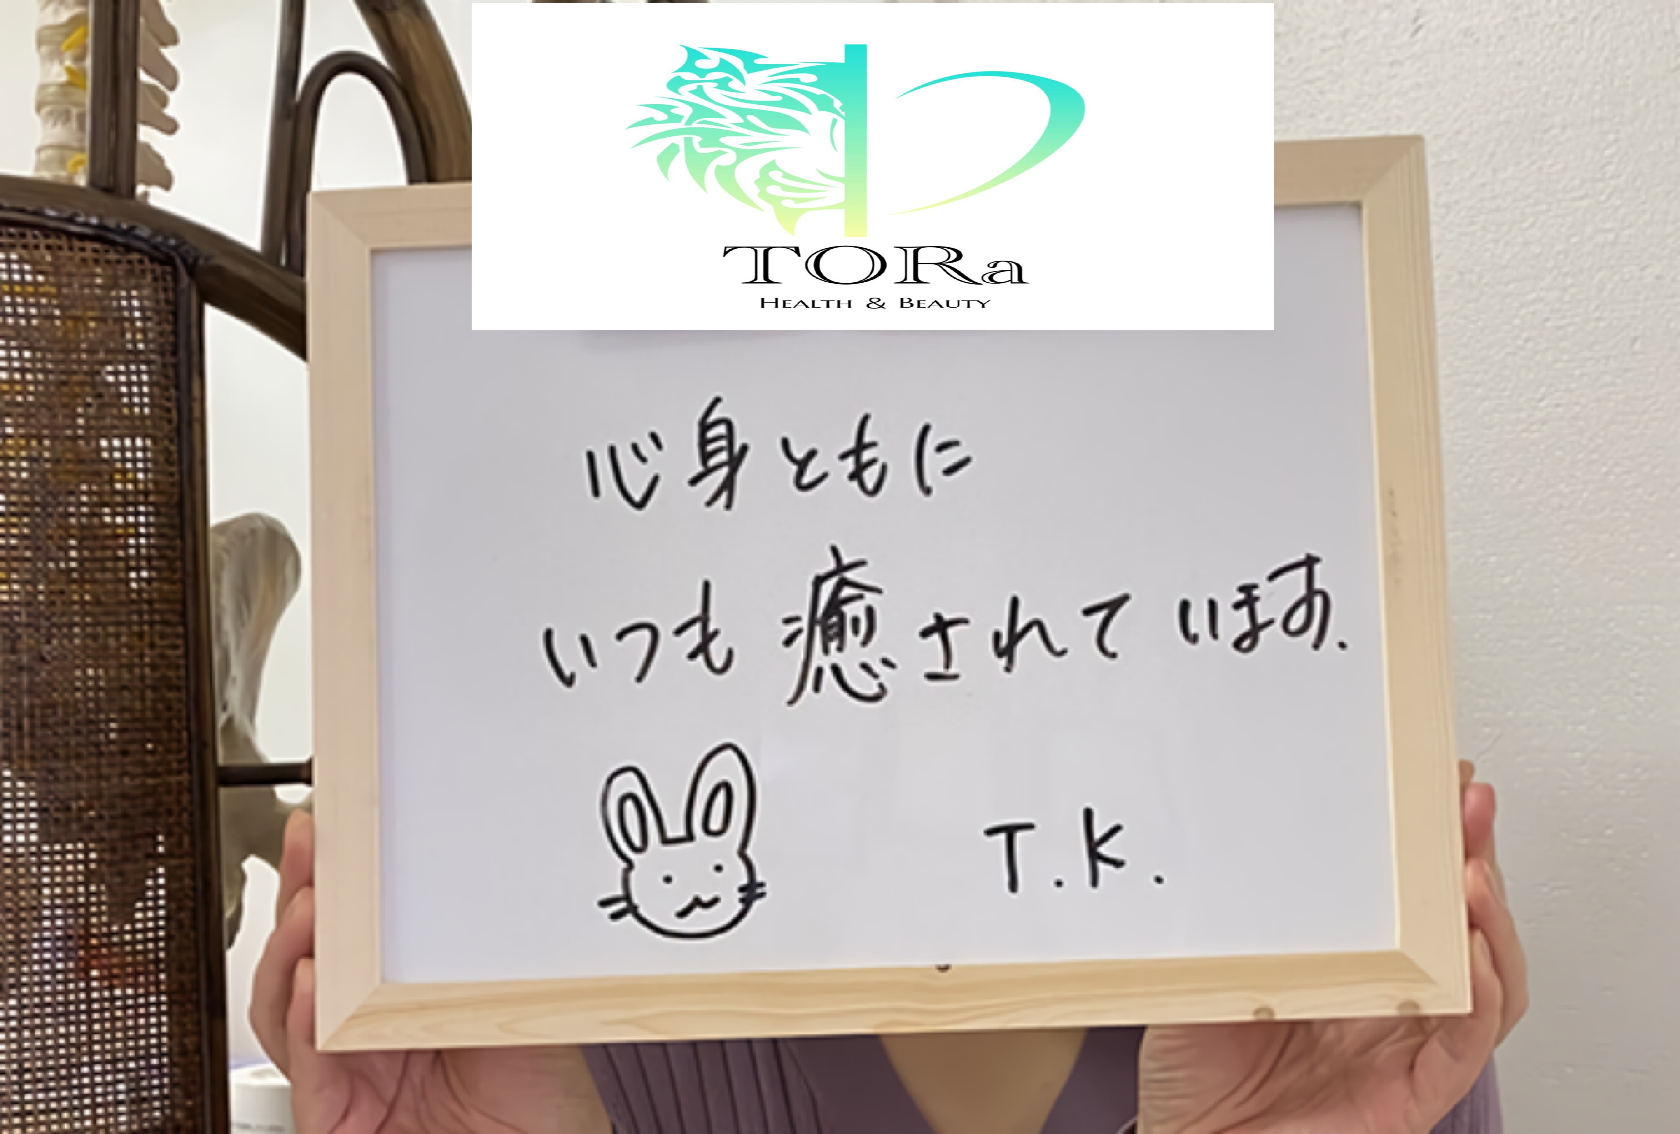 TORa
HEALTH & BEAUTY
心身ともに
いつも癒されています.
T.K.